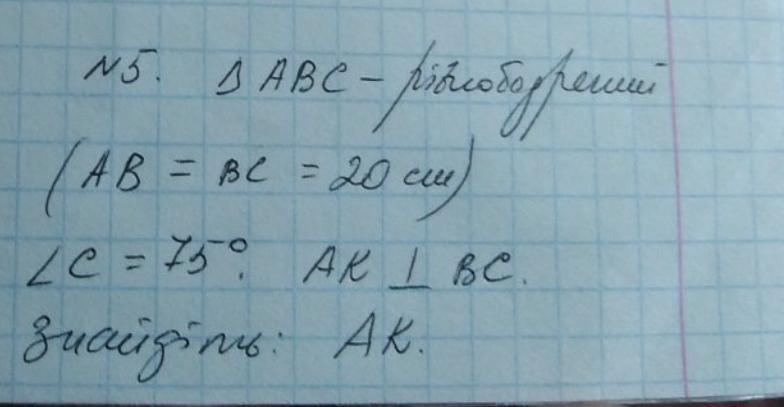 №5. Δ ABC – рівнобедрений
(AB = BC = 20 см)
∠C = 75°. AK ⊥ BC.
Знайдіть: AK.